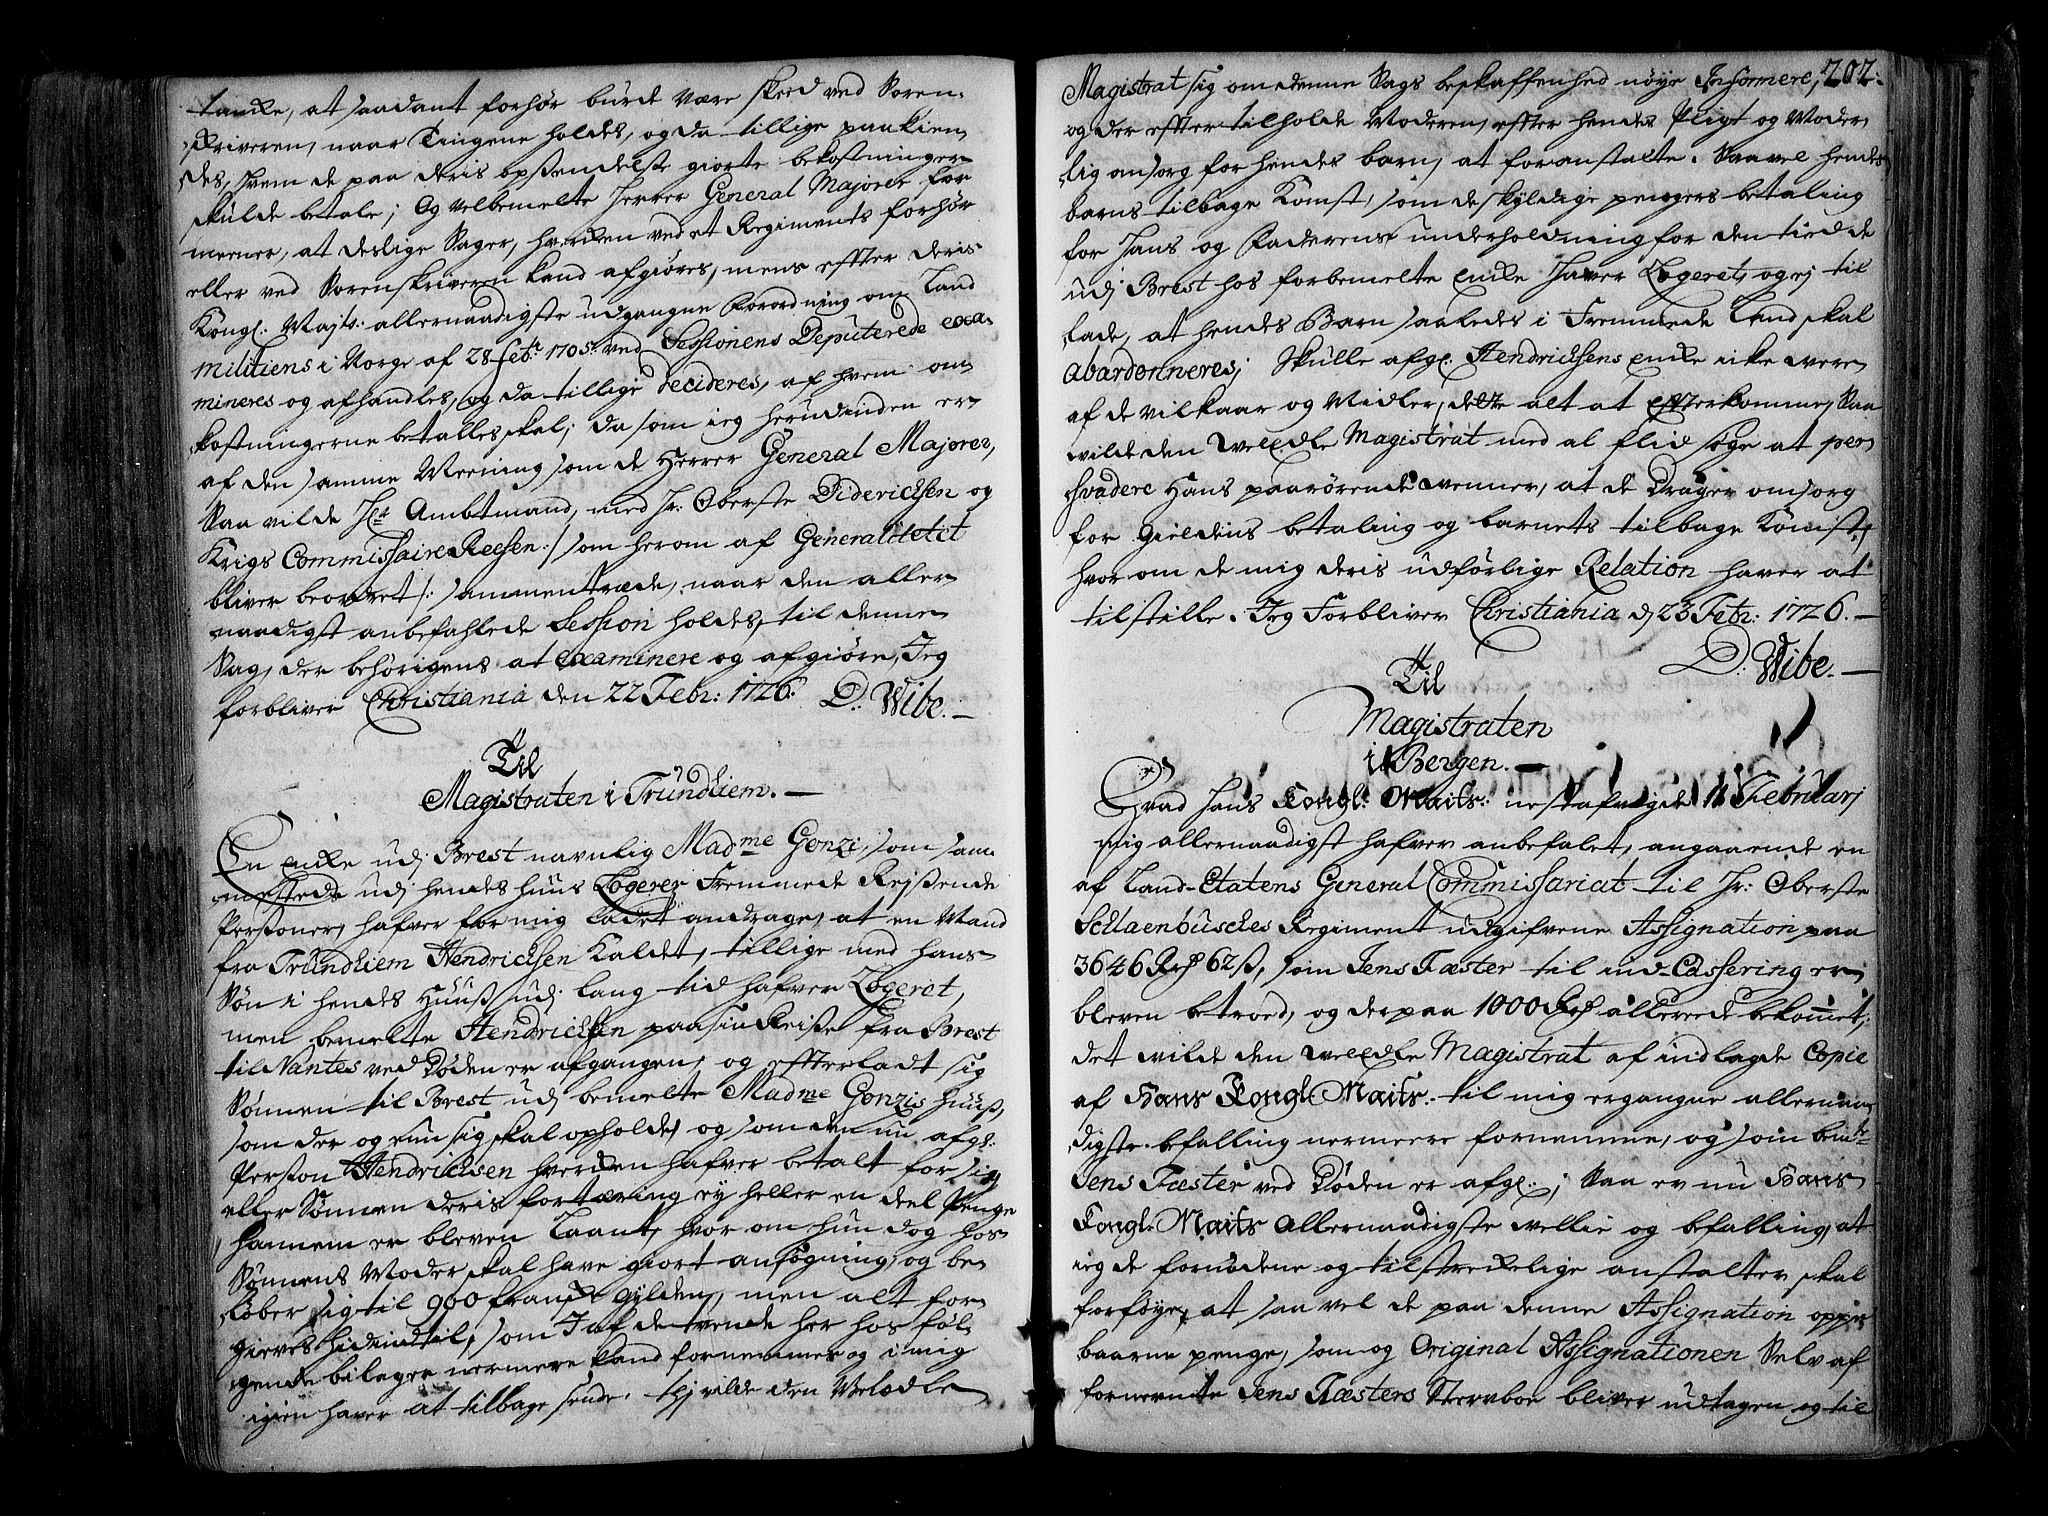 tanke, at saadant forhør burde være skeed ved Soren-
skriveren, naar Tingene holdes, og da tillige paakien-
des, hvem de paa deris opsendelse giorte bekostninger
skulde betale; Og velbemelte Herrer General Majorer for
meener, at deslige Sager, hverken ved et Regiments forhør
eller ved Sorenskriveren kand afgiøres, mens efter deris
Kongl: Majts: allernaadigste udgangne Forordning om Land
militiens i Norge af 28 Feb: 1705 ved Sessionens Deputerede exa-
mineres og afhandles, og da tillige decideres, af hvem om-
kostningerne betalles skal; da som ieg herudinden er
af den samme Meening som de Herrer General Majorer,
Saa vilde Hr Ambtmand, med Hr: Oberste Diderichsen og
Krigs Commissaire Reesen :/ som herom af Generalitetet
bliver beordret /: sammentræde, naar den aller-
naadigst anbefahlede Session holdes, til denne
Sag, der behørigens at examinere og afgiøre, Jeg
forbliver Christiania den 22 Febr: 1726. D. Wibe.
Til
Magistraten i Trundhiem.
En Enke udj Brest navnlig Madme Gonzi, som sam-
mesteds udj hendes huus Logerer Fremmede Reysende
Personer, hafver for mig ladet andrage, at en Mand
fra Trundhiem Hendrichsen kaldet, tillige med hans
Søn i hendes Huus udj lang tid hafver Logeret,
men bemelte Hendrichsen paa sin Reise fra Brest
til Nantes ved Døden er afgangen, og efterladt sig
Sønnen til Brest udj bemelte Madme Gonzis huus,
som der og nu sig skal opholde, og som den nu afg:
Person Hendrichsen hverken hafver betalt for sig
eller Sønnen deris fortæring ey heller en deel Penge
hannem er bleven Laant, hvor om hun dog hos
Sønnens Moder skal have giort ansøgning, og be-
løber sig til 900 franske gylden, men alt for-
gieves hidindtil, som I af de tvende her hos føl-
gende bilager nermere kand fornemme og i mig
igien haver at tilbage sende. Hj vilde den Velædle
Magistrat sig om denne Sags beskaffenhed nøye Informere, 202.
og der effter tilholde Moderen, effter hendes Pligt og Moder
lig ansorg for hendes barn, at foranstalte. Saavel hendes
barns tilbage Komst, som de skyldige pengers betaling
for hans og Faderens underholdning for den tied de
udj Brest hos forbemelte Enke haver Logeret, og ej til
lade, at hendes Barn saaledes i Fremmede Land skal
abandonneres; Skulle afg: Hendrichsens Enke icke være
af de vilkaar og Midler, dette alt at efterkomme, Saa
vilde den Velædle Magistrat med al flid søge at per-
svadere Hans paarørende venner, at de Drager omsorg
for Gieldens betaling og barnets tilbage Komst,
hvor om de mig deris udførlige Relation haver at
tilstille. Jeg Forbliver Christiania d 23 Febr: 1726.
D: Wibe.
Til
Magistraten
i Bergen.
Hvad Hans Kongl: Maits: nest afvigte 11 Februarj
mig allernaadigst hafver anbefalet, angaaende en
af Land-Etatens General Commissariat til Hr: Oberste
Schlaenbusches Regiment udgifvene Assignation paa
3646 Rd 62 s, som Jens Fæster til ind-Cassering er
bleven betroed, og der paa 1000 Rd allerede bekommet;
det vilde den Velædle Magistrat af indlagde Copie
af Hans Kongl: Maits: til mig ergangne allernaa-
digste befalling nermere fornemme, og som bemte
Jens Fæster ved Døden er afg:; Saa er nu Hans
Kongl: Maits allernaadigste vellie og befalling, at
ieg de fornødene og tilstrekelige anstalter skal
forføye, at saa vel de paa denne Assignation oppe
baarne penge, som og Original Assignationen Selv af
fornevnte Jens Fæsters Stervboe bliver udtagen og til